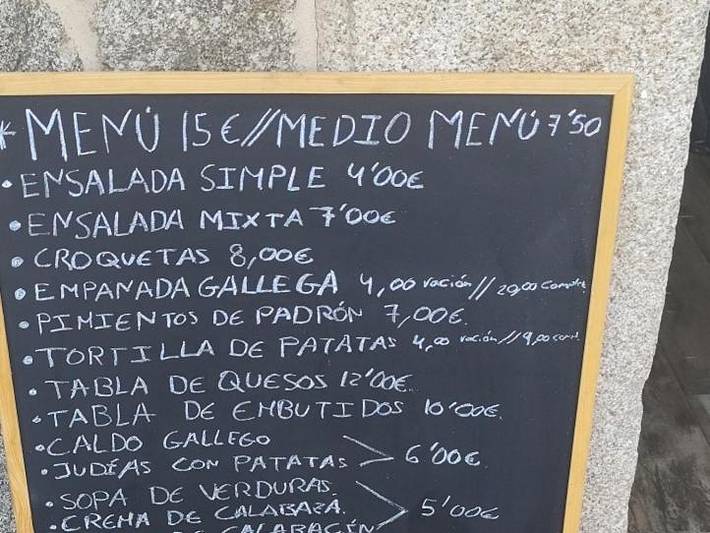 * MENÚ 15€//MEDIO MENÚ 7'50
• ENSALADA SIMPLE 4'00€
• ENSALADA MIXTA 7'00€
• CROQUETAS 8,00€
• EMPANADA GALLEGA 4,00 ración // 20,00
• PIMIENTOS DE PADRÓN 7,00€
• TORTILLA DE PATATAS 4,00 ración // 9,00
• TABLA DE QUESOS 12'00€
• TABLA DE EMBUTIDOS 10'00€
• CALDO GALLEGO
• JUDÍAS CON PATATAS > 6'00€
• SOPA DE VERDURAS
• CREMA DE CALABAZA > 5'00€
CALABACÍN